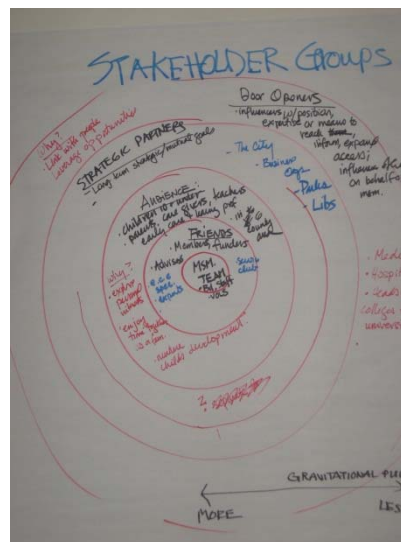 STAKEHOLDER GROUPS
Door Openers
• influencers w/position,
expertise or means to
reach
inform, expand
access;
influence
on behalf of
msm.
Why?
• Link with people
• Learning opportunities
STRATEGIC PARTNERS
- Long term strategic/mutual goals
• The City
• Business
Orgs
• Parks
• Libs
AUDIENCE:
• children 10 + under
• parents, care givers, teachers
early care &
in
county
and
FRIENDS
• Members, funders
• Advisors
e.c.e
spec.
experts
MSM.
TEAM
• Bd, Staff
Vols
Service
clubs
Why?
• explore
personal
interests
• enjoy
time together
as a fam.
• nurture
child's development
• Media
• Hospital
colleges
universi
GRAVITATIONAL PULL
MORE
LES